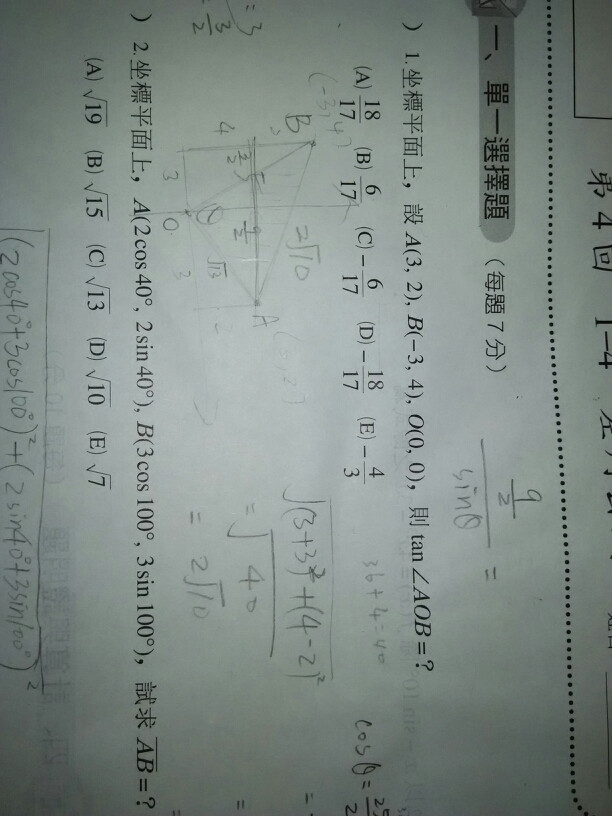 第4回 1-4
一、單一選擇題 (每題 7 分)
) 1. 坐標平面上，設 A(3, 2), B(−3, 4), O(0, 0)，則 tan∠AOB=?
(A) 18/17 (B) 6/17 (C) −6/17 (D) −18/17 (E) −4/3
) 2. 坐標平面上，A(2cos40°, 2sin40°), B(3cos100°, 3sin100°)，試求 AB=?
(A) √19 (B) √15 (C) √13 (D) √10 (E) √7
9/2 / sinθ =
36+4=40
√(3+3)²+(4−2)²
= √40
= 2√10
cosθ=
B
(-3,4)
A
2√10
√13
O
4
3
3
2
9/2
= 3/2
√(2cos40°+3cos100°)²+(2sin40°+3sin100°)²